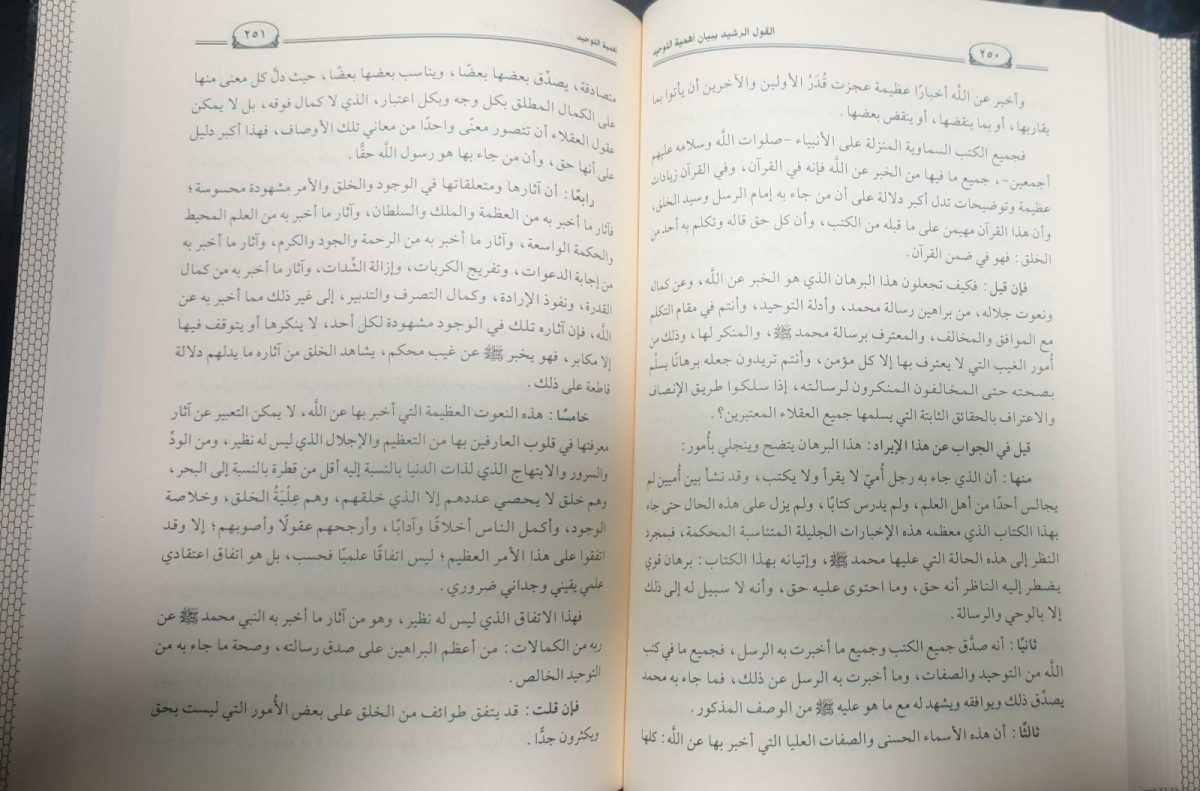 القول الرشيد ببيان أهمية التوحيد
٢٥٠
وأخبر عن اللَّه أخبارًا عظيمة عجزت قُدَرُ الأولين والآخرين أن يأتوا بما
يقاربها، أو بما ينقضها، أو ينقض بعضها .
فجميع الكتب السماوية المنزلة على الأنبياء -صلوات اللَّه وسلامه عليهم
أجمعين-، جميع ما فيها من الخبر عن اللَّه فإنه في القرآن، وفي القرآن زيادات
عظيمة وتوضيحات تدل أكبر دلالة على أن من جاء به إمام الرسل وسيد الخلق،
وأن هذا القرآن مهيمن على ما قبله من الكتب، وأن كل حق قاله وتكلم به أحد من
الخلق : فهو في ضمن القرآن .
فإن قيل : فكيف تجعلون هذا البرهان الذي هو الخبر عن اللَّه، وعن كماله
ونعوت جلاله، من براهين رسالة محمد، وأدلة التوحيد، وأنتم في مقام التكلم
مع الموافق والمخالف، والمعترف برسالة محمد ﷺ، والمنكر لها، وذلك من
أُمور الغيب التي لا يعترف بها إلا كل مؤمن، وأنتم تريدون جعله برهانًا يسلّم
بصحته حتى المخالفون المنكرون لرسالته، إذا سلكوا طريق الإنصاف
والاعتراف بالحقائق الثابتة التي يسلمها جميع العقلاء المعتبرين؟ .
قيل في الجواب عن هذا الإيراد : هذا البرهان يتضح وينجلي بأُمور:
منها : أن الذي جاء به رجل أُميّ لا يقرأ ولا يكتب، وقد نشأ بين أُميين لم
يجالس أحدًا من أهل العلم، ولم يدرس كتابًا، ولم يزل على هذه الحال حتى جاء
بهذا الكتاب الذي معظمه هذه الإخبارات الجليلة المتناسبة المحكمة، فبمجرد
النظر إلى هذه الحالة التي عليها محمد ﷺ، وإتيانه بهذا الكتاب : برهان قوي
يضطر إليه الناظر أنه حق، وما احتوى عليه حق، وأنه لا سبيل له إلى ذلك
إلا بالوحي والرسالة .
ثانيًا : أنه صدَّق جميع الكتب وجميع ما أخبرت به الرسل، فجميع ما في كتب
اللَّه من التوحيد والصفات، وما أخبرت به الرسل عن ذلك، فما جاء به محمد
يصدِّق ذلك ويوافقه ويشهد له مع ما هو عليه ﷺ من الوصف المذكور .
ثالثًا : أن هذه الأسماء الحسنى والصفات العليا التي أخبر بها عن اللَّه : كلها
أهمية التوحيد
٢٥١
متصادقة، يصدِّق بعضها بعضًا، ويناسب بعضها بعضًا، حيث دلَّ كل معنى منها
على الكمال المطلق بكل وجه وبكل اعتبار، الذي لا كمال فوقه، بل لا يمكن
عقول العقلاء أن تتصور معنًى واحدًا من معاني تلك الأوصاف، فهذا أكبر دليل
على أنها حق، وأن من جاء بها هو رسول اللَّه حقًّا .
رابعًا : أن آثارها ومتعلقاتها في الوجود والخلق والأمر مشهودة محسوسة؛
فآثار ما أخبر به من العظمة والملك والسلطان، وآثار ما أخبر به من العلم المحيط
والحكمة الواسعة، وآثار ما أخبر به من الرحمة والجود والكرم، وآثار ما أخبر به
من إجابة الدعوات، وتفريج الكربات، وإزالة الشِّدات، وآثار ما أخبر به من كمال
القدرة، ونفوذ الإرادة، وكمال التصرف والتدبير، إلى غير ذلك مما أخبر به عن
اللَّه، فإن آثاره تلك في الوجود مشهودة لكل أحد، لا ينكرها أو يتوقف فيها
إلا مكابر، فهو يخبر ﷺ عن غيب محكم، يشاهد الخلق من آثاره ما يدلهم دلالة
قاطعة على ذلك .
خامسًا : هذه النعوت العظيمة التي أخبر بها عن اللَّه، لا يمكن التعبير عن آثار
معرفتها في قلوب العارفين بها من التعظيم والإجلال الذي ليس له نظير، ومن الودِّ
والسرور والابتهاج الذي لذات الدنيا بالنسبة إليه أقل من قطرة بالنسبة إلى البحر،
وهم خلق لا يحصي عددهم إلا الذي خلقهم، وهم عِلْيَةُ الخلق، وخلاصة
الوجود، وأكمل الناس أخلاقًا وآدابًا، وأرجحهم عقولًا وأصوبهم؛ إلا وقد
اتفقوا على هذا الأمر العظيم؛ ليس اتفاقًا علميًا فحسب، بل هو اتفاق اعتقادي
علمي يقيني وجداني ضروري .
فهذا الاتفاق الذي ليس له نظير، وهو من آثار ما أخبر به النبي محمد ﷺ عن
ربه من الكمالات : من أعظم البراهين على صدق رسالته، وصحة ما جاء به من
التوحيد الخالص .
فإن قلت : قد يتفق طوائف من الخلق على بعض الأُمور التي ليست بحق
ويكثرون جدًّا .